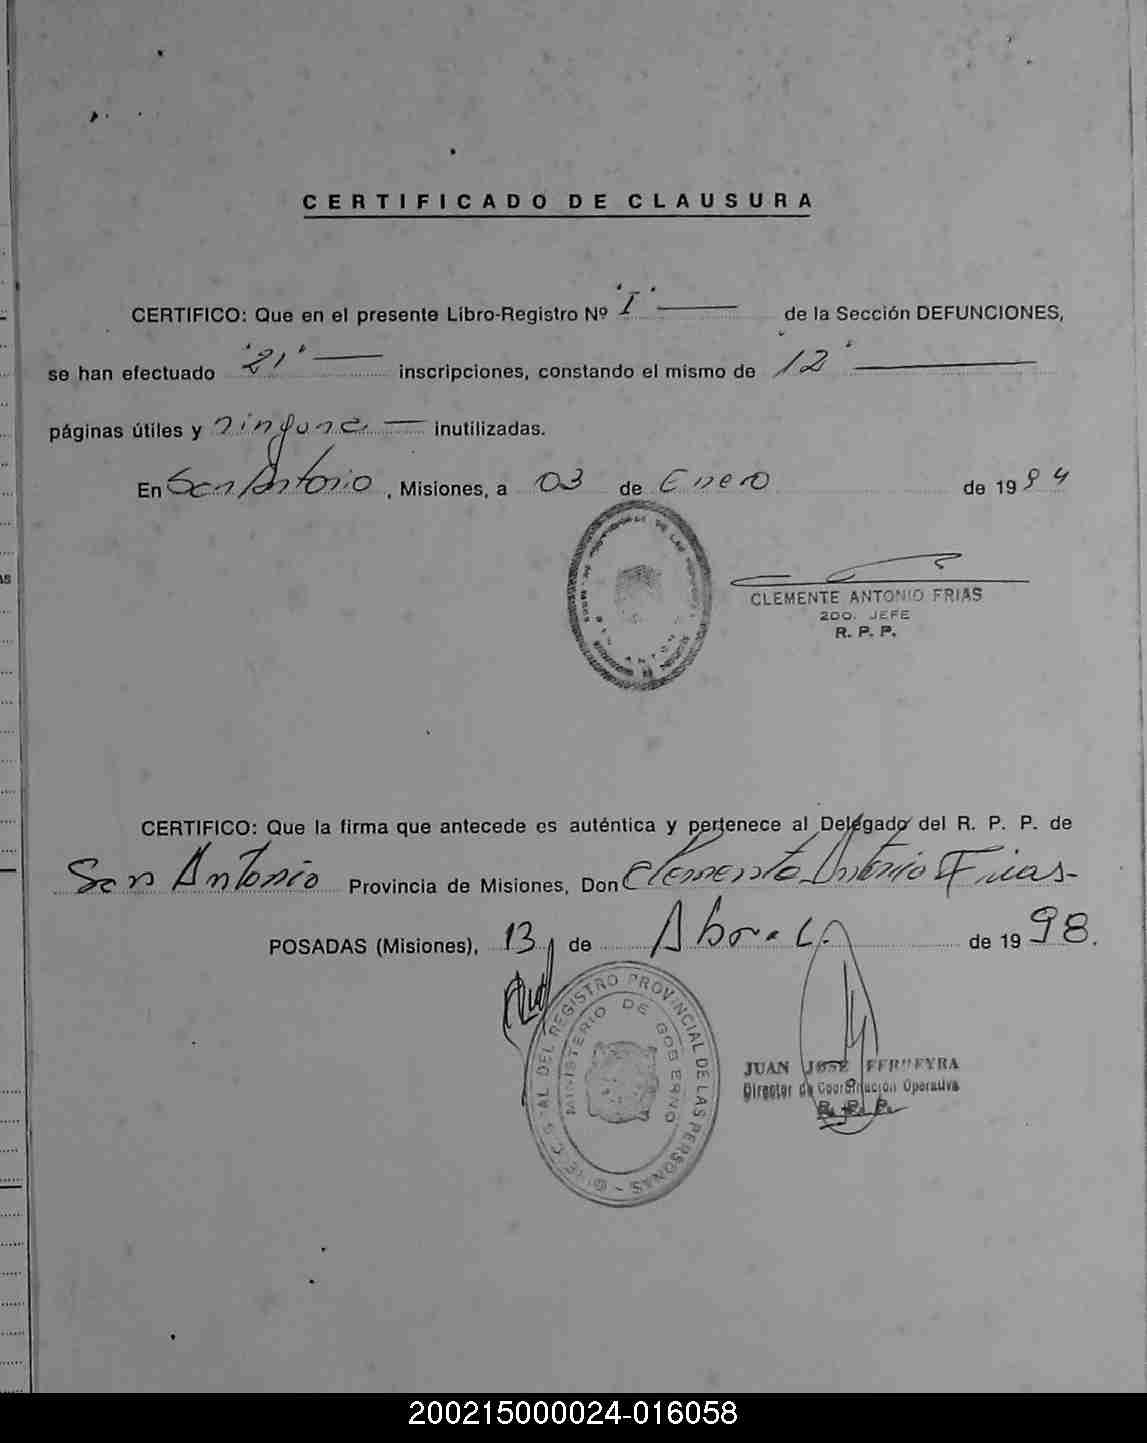 CERTIFICADO DE CLAUSURA
CERTIFICO: Que en el presente Libro-Registro Nº "I" de la Sección DEFUNCIONES,
se han efectuado "21" inscripciones, constando el mismo de "12"
páginas útiles y ninguna inutilizadas.
En San Antonio, Misiones, a 03 de Enero de 19
CLEMENTE ANTONIO FRIAS
2DO. JEFE
R. P. P.
CERTIFICO: Que la firma que antecede es auténtica y pertenece al Delegado del R. P. P. de
San Antonio Provincia de Misiones, Don Clemente Antonio Frias-
POSADAS (Misiones), 13 de Abril de 1998.
REGISTRO PROVINCIAL DE LAS PERSONAS
MINISTERIO DE GOBIERNO
JUAN JOSE FERREYRA
Director de Coordinación Operativa
R. P. P.
200215000024-016058